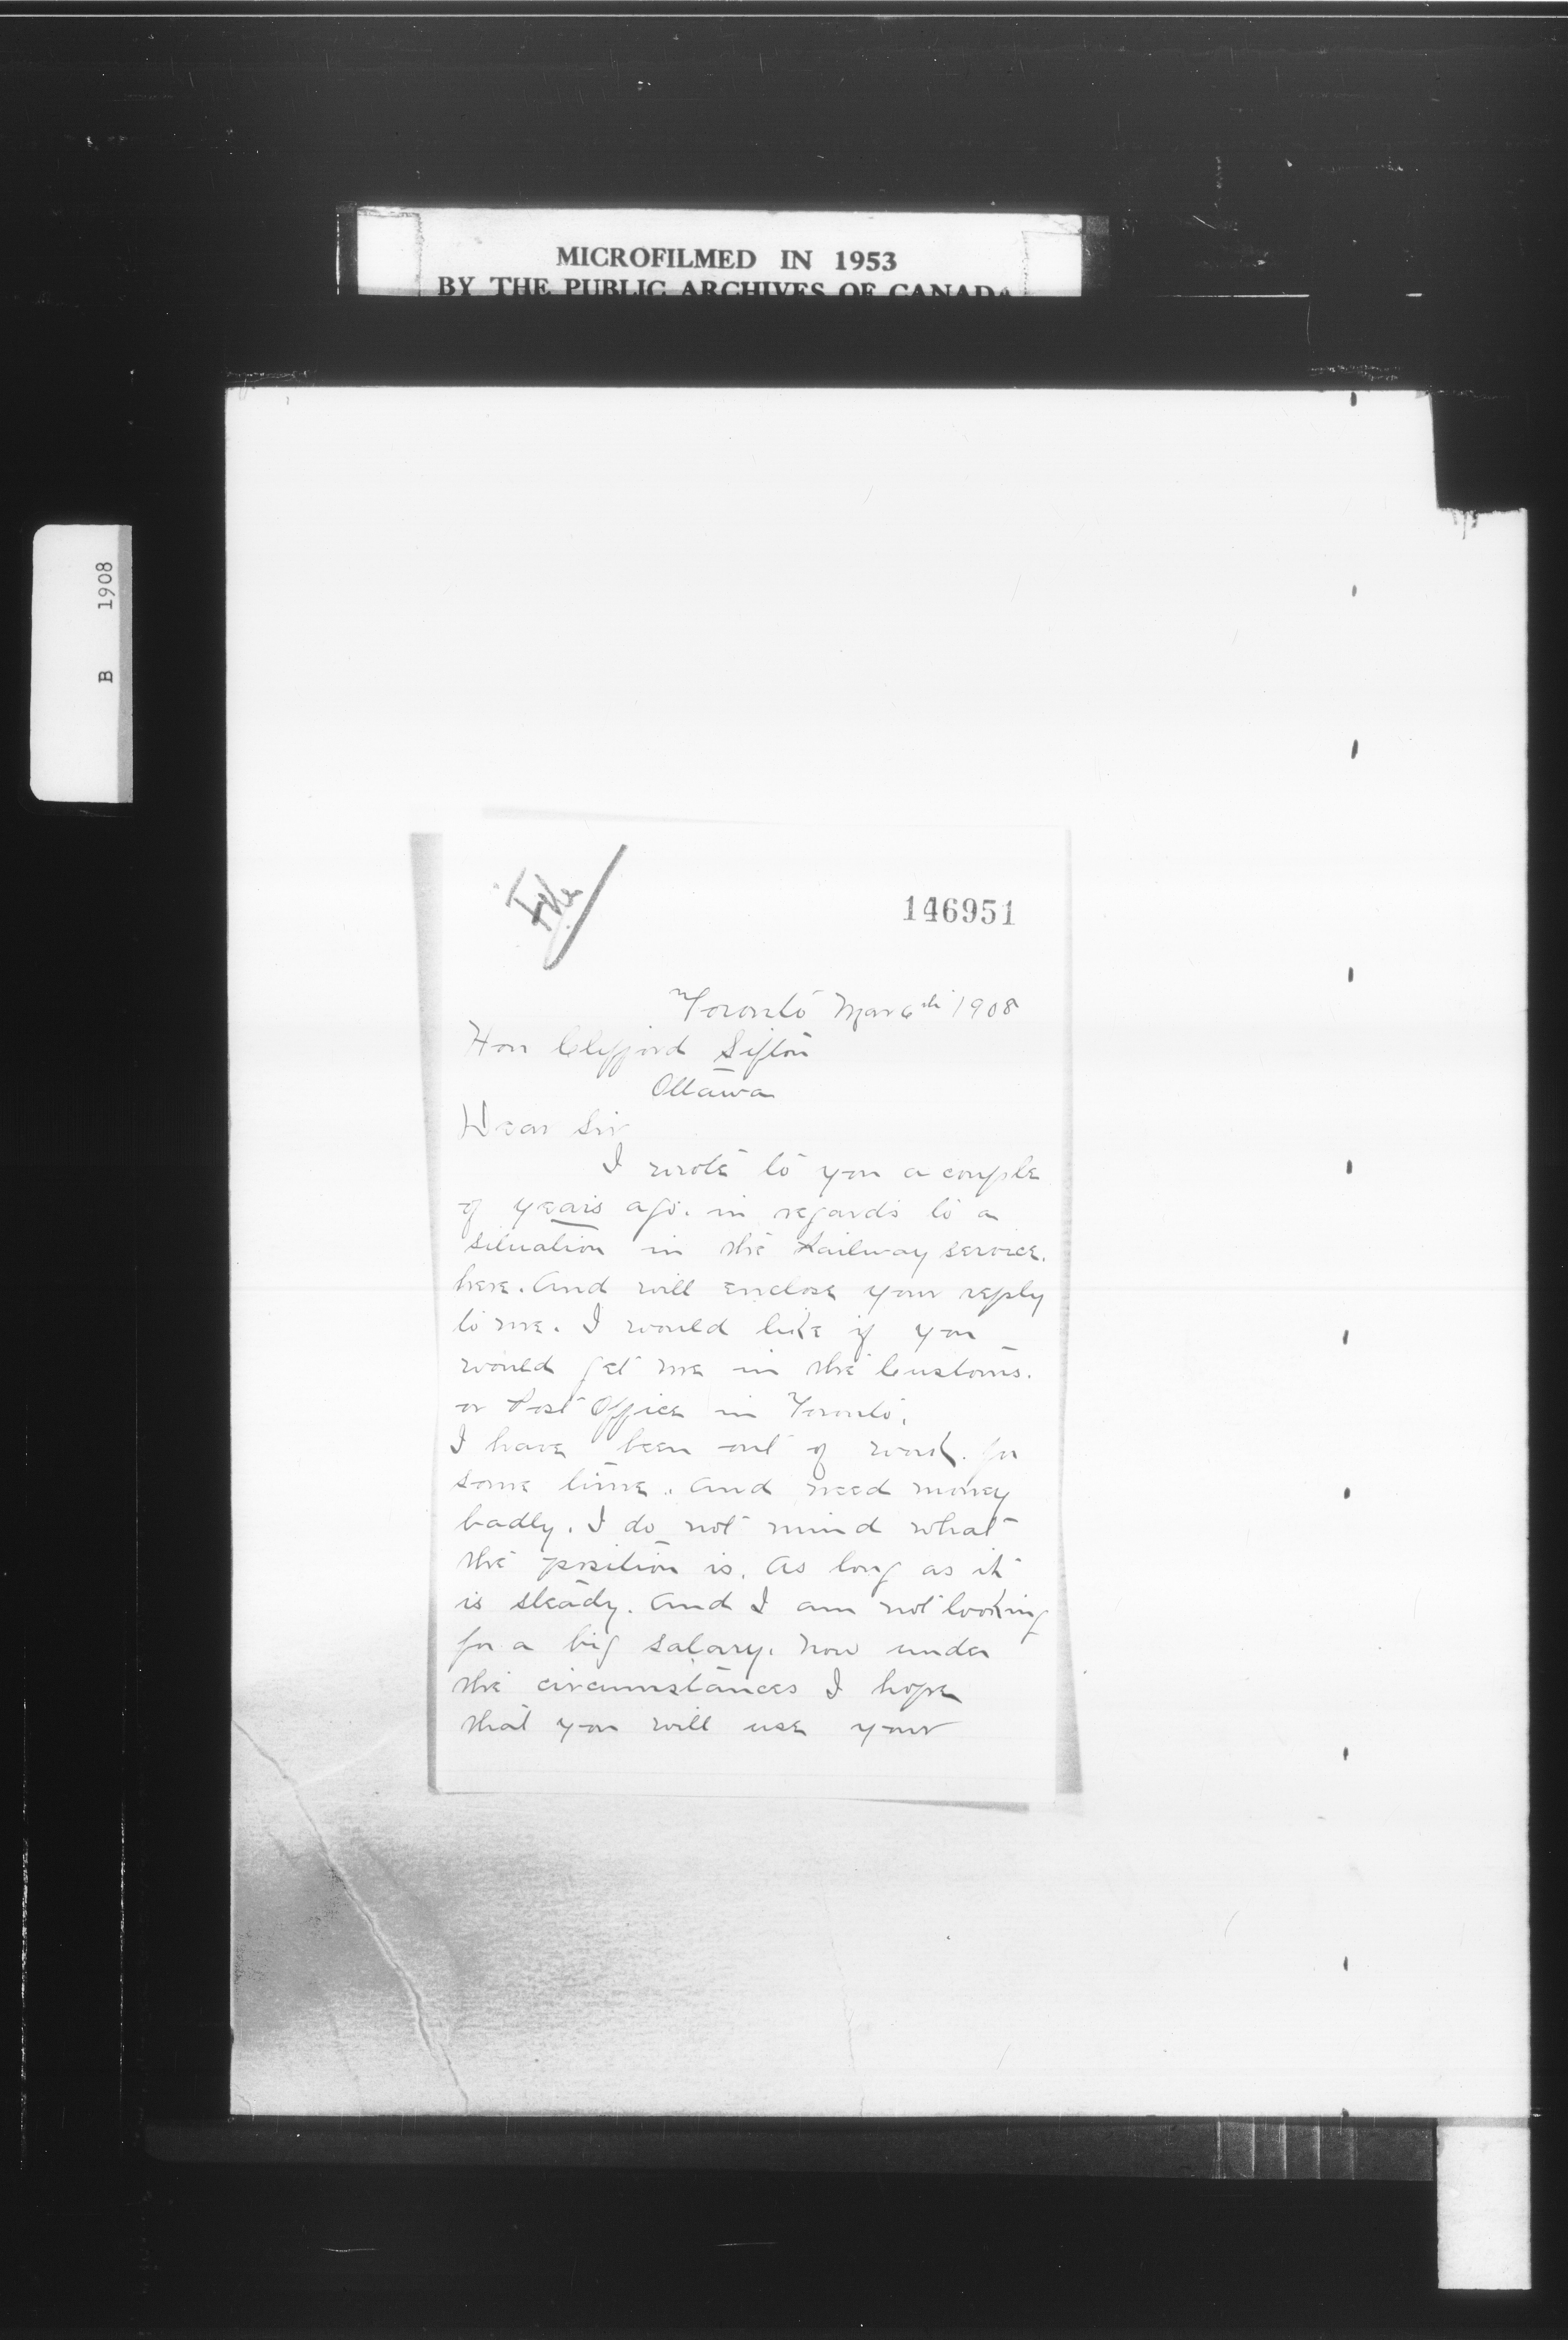 MICROFILMED IN 1953
BY THE PUBLIC ARCHIVES OF CANADA
B 1908
File
146951
Toronto Mar 6th 1908
Hon Clifford Sifton
Ottawa
Dear Sir
I wrote to you a couple
of years ago. in regards to a
situation in the Railway service.
here. And will enclose your reply
to me. I would like if you
would get me in the Customs.
or Post Office in Toronto.
I have been out of work. for
some time. and need money
badly. I do not mind what
the position is. as long as it
is steady. And I am not looking
for a big salary. now under
the circumstances I hope
that you will use your